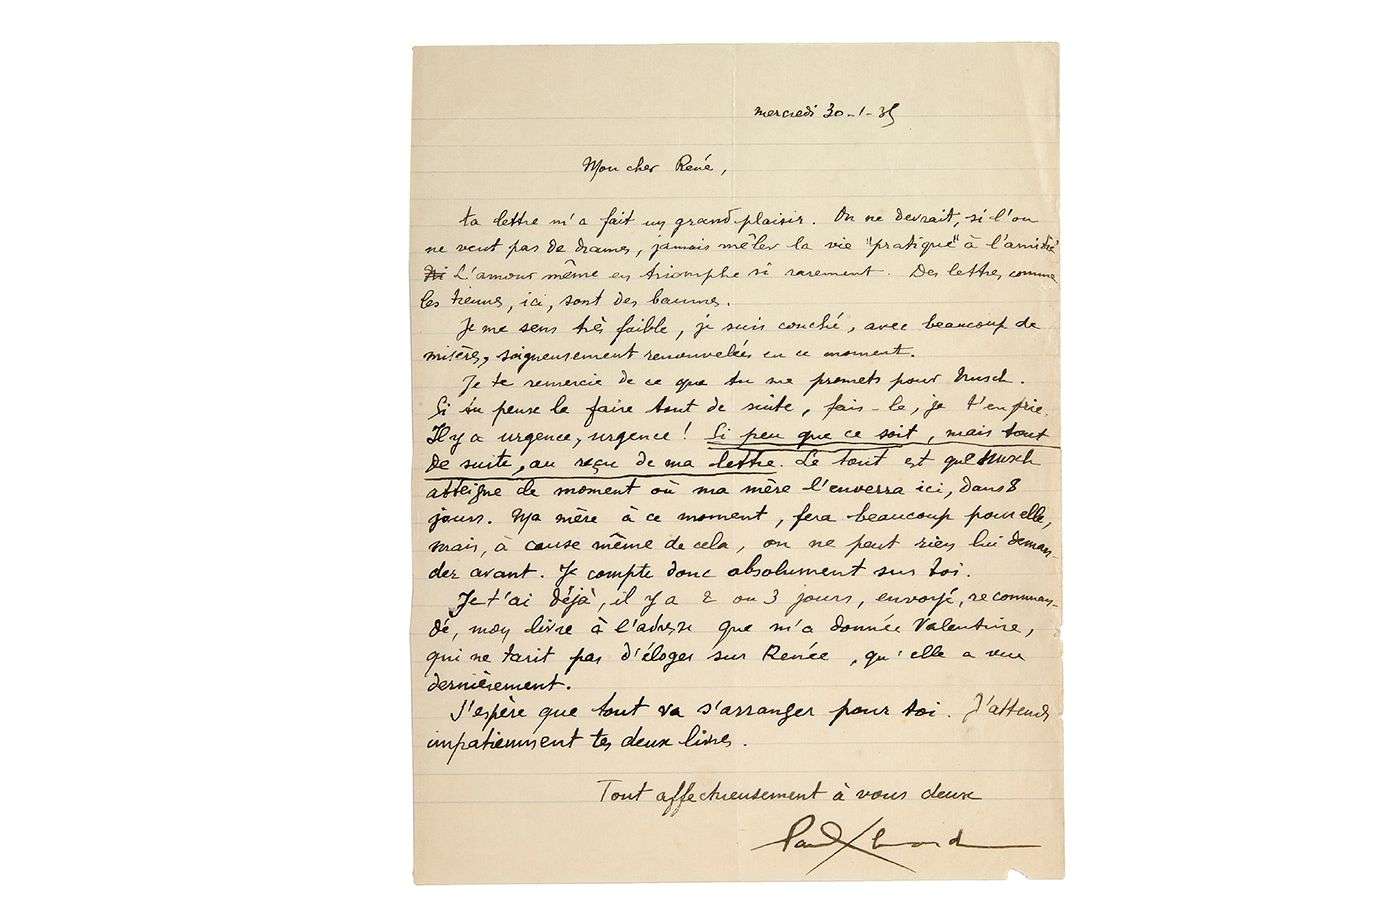 mercredi 30-1-35
Mon cher René,
ta lettre m'a fait un grand plaisir. On ne devrait, si l'on
ne veut pas de drames, jamais mêler la vie "pratique" à l'amitié
L'amour même en triomphe si rarement. Des lettres comme
les tiennes, ici, sont des baumes.
Je me sens très faible, je suis couché, avec beaucoup de
misères, soigneusement renouvelées en ce moment.
Je te remercie de ce que tu me promets pour Nusch.
Si tu peux le faire tout de suite, fais-le, je t'en prie.
Il y a urgence, urgence! Si peu que ce soit, mais tout
de suite, au reçu de ma lettre. Le tout est que Nusch
atteigne le moment où ma mère l'enverra ici, dans 8
jours. Ma mère à ce moment, fera beaucoup pour elle,
mais, à cause même de cela, on ne peut rien lui deman-
der avant. Je compte donc absolument sur toi.
Je t'ai déjà, il y a 2 ou 3 jours, envoyé, recomman-
dé, mon livre à l'adresse que m'a donnée Valentine,
qui ne tarit pas d'éloges sur Renée, qu'elle a vue
dernièrement.
J'espère que tout va s'arranger pour toi. J'attends
impatiemment tes deux livres.
Tout affectueusement à vous deux
Paul Eluard